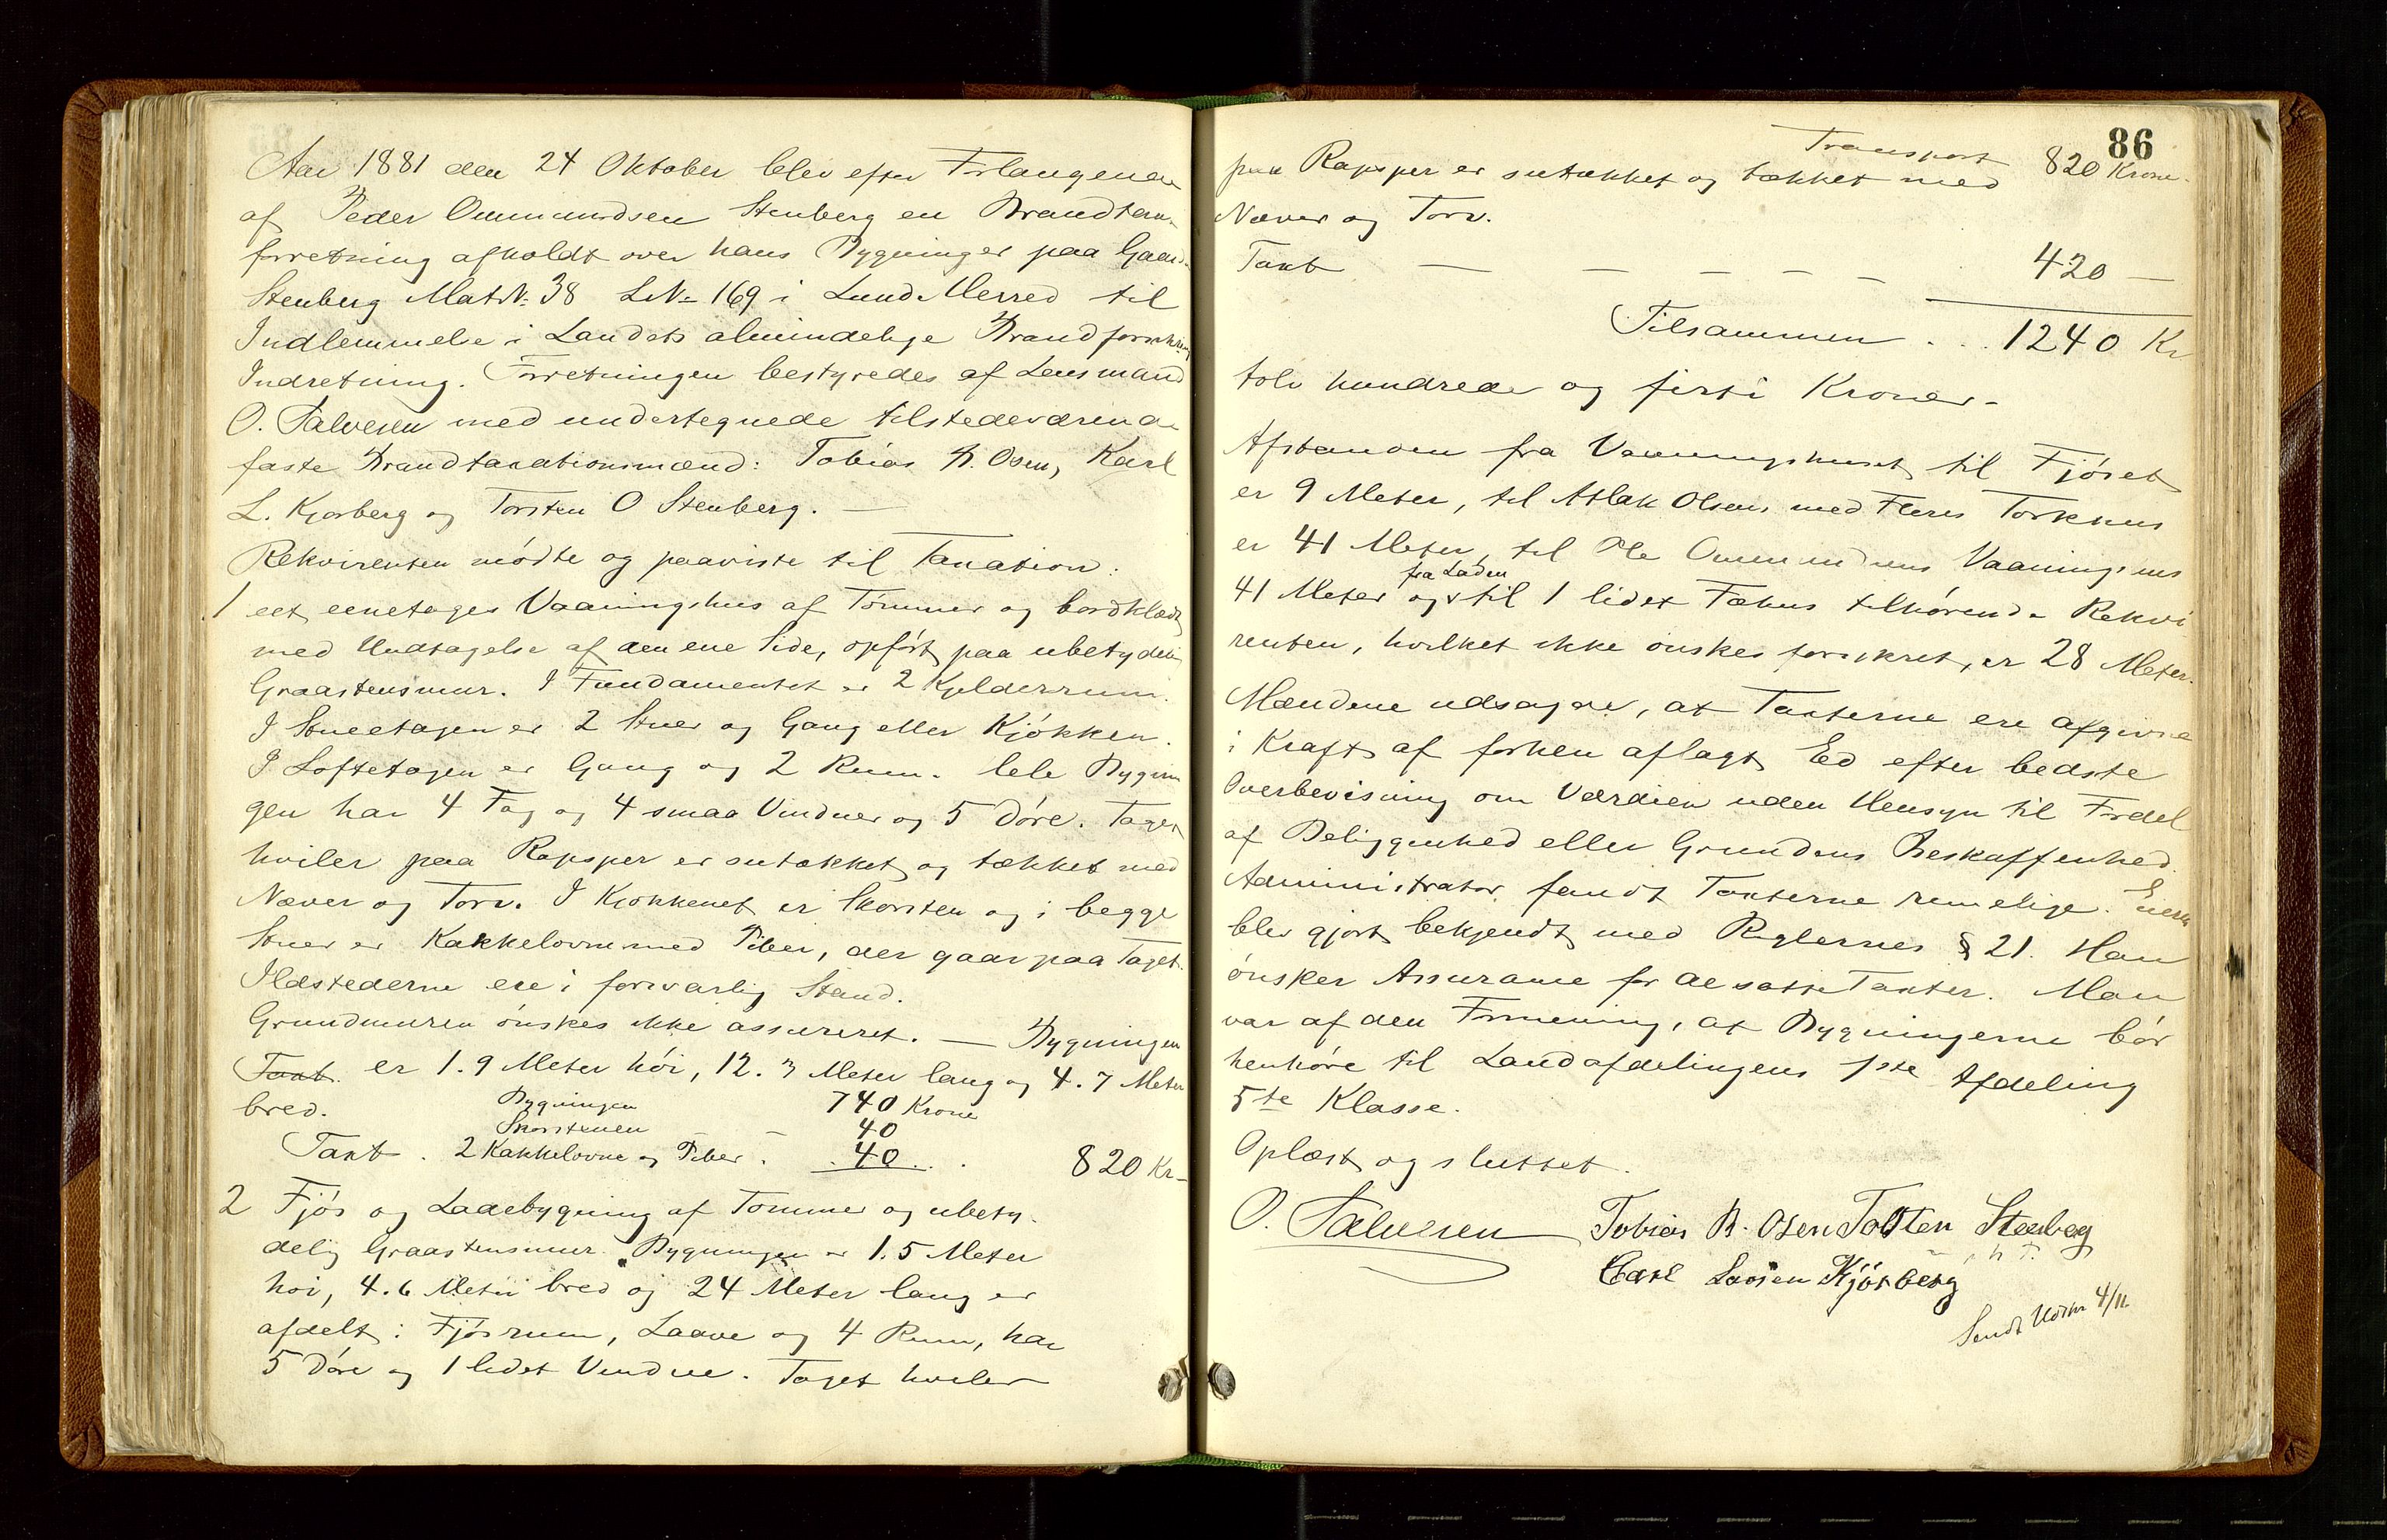 Aar 1881 den 24 Oktober blev efter Forlangende
af Peder Ommundsen Stenberg en Brandtaxa-
forretning afholdt over hans Bygninger paa Gaard
Stenberg MatN: 38 LN= 169 i Lund Herred til
Indlemmelse i Landets almindelige Brandforsikrings
Indretning. Forretningen bestyredes af Lensmand
O. Salvesen med undertegnede tilstedeværende
faste Brandtaxationsmænd: Tobias B. Osen, Karl
L. Kjørberg og Torsten O Stenberg. —
Rekvirenten mødte og paaviste til Taxation:
1 eet eenetages Vaaningshus af Tømmer og bordklædt
med Undtagelse af den ene Side, opført paa ubetydelig
Graastensmur. I Fundamentet er 2 Kjelderrum.
I Stueetagen er 2 Stuer og Gang eller Kjøkken.
I Loftetagen er Gang og 2 Rum. Hele Bygnin
gen har 4 Fag og 4 smaa Vinduer og 5 Døre. Taget
hviler paa Rapsper er sutækket og tækket med
Næver og Torv. I Kjøkkenet er Skorsten og i begge
Stuer er Kakkelovn med Piber, der gaar paa Taget.
Ildstederne ere i forsvarlig Stand.
Grundmuren ønskes ikke assureret. — Bygningen
Taxt. er 1.9 Meter høi, 12.3 Meter lang og 4.7 Meter
bred. Bygningen 740 Krone
Skorstenen — 40
Taxt . 2 Kakkelovne og Piber . . 40 . . 820 Kr-
2 Fjøs og Ladebygning af Tømmer og ubety-
delig Graastensmur. Bygningen er 1.5 Meter
høi, 4.6 Meter bred og 24 Meter lang er
afdelt i Fjøsrum, Laave og 4 Rum, har
5 Døre og 1 lidet Vindue. Taget hviler
86
Transport 820 Krone.
paa Rapsper er sutækket og tækket med
Næver og Torv.
Taxt — — — — — 420 —
Tilsammen . . . 1240 Kr
tolv hundrede og firti Kroner-
Afstanden fra Vaaningshuset til Fjøset
er 9 Meter, til Atlak Olsens med Fleres Torkhus
er 41 Meter, til Ole Ommundsens Vaaningshus
fra Laden
41 Meter og til 1 lidet Fæhus tilhørende Rekvi
renten, hvilket ikke ønskes forsikret, er 28 Meter.
Mændene udsagde, at Taxterne ere afgivne
i Kraft af forhen aflagt Ed efter bedste
Overbevisning om Værdien uden Hensyn til Fordel
af Beliggenhed eller Grundens Beskaffenhed.
Administrator fandt Taxterne rimelige. Eieren
blev gjort bekjendt med Reglernes § 21. Han
ønsker Assurance for de satte Taxter. Man
var af den Formening, at Bygningerne bør
henhøre til Landafdelingens 1ste Afdeling
5te Klasse.
Oplæst og sluttet.
O. Salvesen Tobias B. Osen Tosten Stenberg
Carl Larsen Kjørberg
Sendt Udskr 4/11.